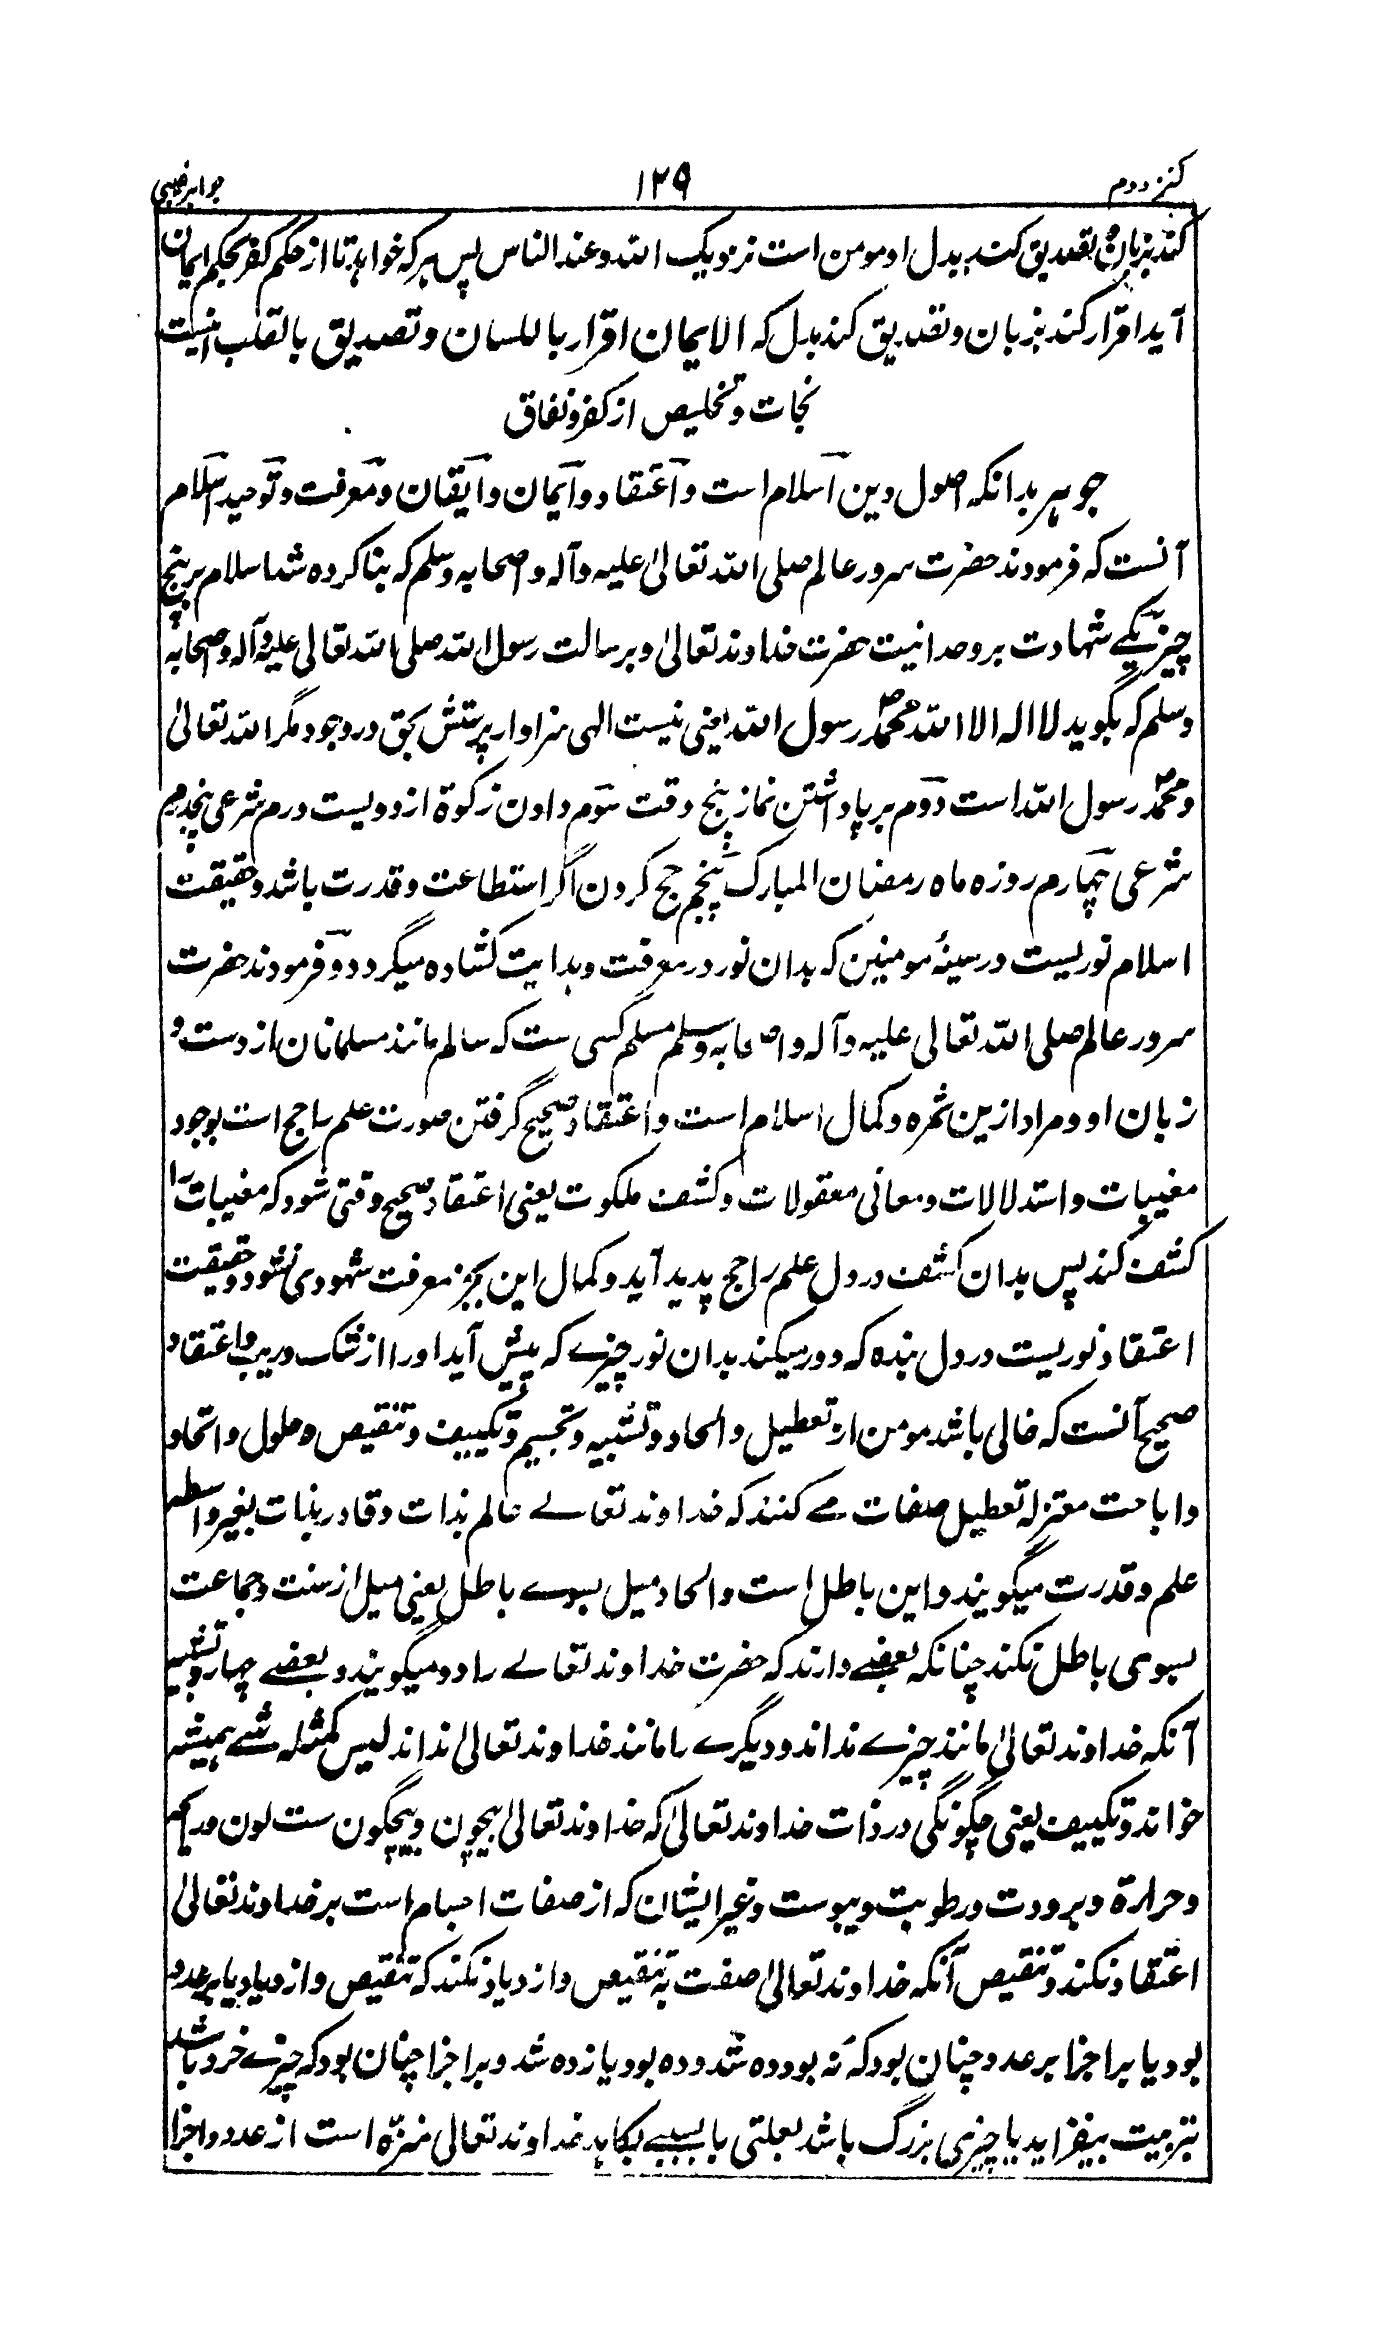 کنز دوم
۱۲۹
جواهر غیبی
کند بزبان و تصدیق کند بدل او مومن است نزدیک الله و عند الناس پس هر که خواهد تا از حکم کفر بحکم ایمان
آید اقرار کند بزبان و تصدیق کند بدل که الایمان اقرار باللسان و تصدیق بالقلب اینست
نجات و تخلیص از کفر و نفاق
جوهر بدانکه اصول دین اسلام است و اعتقاد و ایمان و ایقان و معرفت و توحید اسلام
آنست که فرمودند حضرت سرور عالم صلی الله تعالیٰ علیه و آله و اصحابه وسلم که بنا کرده شد اسلام بر پنج
چیز یکے شهادت بر وحدانیت حضرت خداوند تعالیٰ و برسالت رسول الله صلی الله تعالی علیه و آله و اصحابه
وسلم که بگوید لا اله الا الله محمد رسول الله یعنی نیست الهی سزاوار پرستش بحق در وجود مگر الله تعالیٰ
و محمد رسول الله است دوم بر پا داشتن نماز پنج وقت سوم دادن زکوة از دویست درم شرعی پنجدرم
شرعی چهارم روزه ماه رمضان المبارک پنجم حج کردن اگر استطاعت و قدرت باشد و حقیقت
اسلام نوریست در سینۀ مومنین که بدان نور در معرفت و هدایت کشاده میگردد و فرمودند حضرت
سرور عالم صلی الله تعالی علیه و آله و اصحابه وسلم مسلم کسی ست که سالم مانند مسلمانان از دست و
زبان او و مراد ازین ثمره و کمال اسلام است و اعتقاد صحیح گرفتن صورت علم راجح است بوجود
مغیبات و استدلالات و معانی معقولات و کشف ملکوت یعنی اعتقاد صحیح وقتی شود که مغیبات را
کشف کند پس بدان کشف در دل علم راجح پدید آید و کمال این بجز معرفت شهودی نشود و حقیقت
اعتقاد نوریست در دل بنده که دور میکند بدان نور چیزے که پیش آید او را از شک و ریب و اعتقاد
صحیح آنست که خالی باشد مومن از تعطیل و الحاد و تشبیه و تجسیم و تکییف و تنقیص و حلول و اتحاد
و اباحت معتزله تعطیل صفات مے کنند که خداوند تعالے عالم بذات و قادر بذات بغیر واسطه
علم و قدرت میگویند و این باطل است و الحاد میل بسوے باطل یعنی میل از سنت و جماعت
بسوی باطل نکند چنانکه بعضے دارند که حضرت خداوند تعالے را دو میگویند و بعضے چهار و تشبیه
آنکه خداوند تعالیٰ مانند چیزے نداند و دیگرے را مانند خداوند تعالیٰ نداند لیس کمثله شے همیشه
خواند و تکییف یعنی چگونگی در ذات خداوند تعالیٰ که خداوند تعالیٰ بیچون و بیچگون ست لون و
و حرارة و برودت و رطوبت و یبوست و غیر ایشان که از صفات اجسام است بر خداوند تعالیٰ
اعتقاد نکند و تنقیص آنکه خداوند تعالیٰ صفت به تنقیص و ازدیاد نکند که تنقیص و ازدیاد یا بر عدد
بود یا بر اجزا بر عدد چنان بود که نه بود ده شد و ده بود یازده شد و بر اجزا چنان بود که چیزے خرد باشد
بتربیت بیفزاید یا چیزی بزرگ باشد بعلتی یا بسببے بکاهد خداوند تعالی منزه است از عدد و اجزا